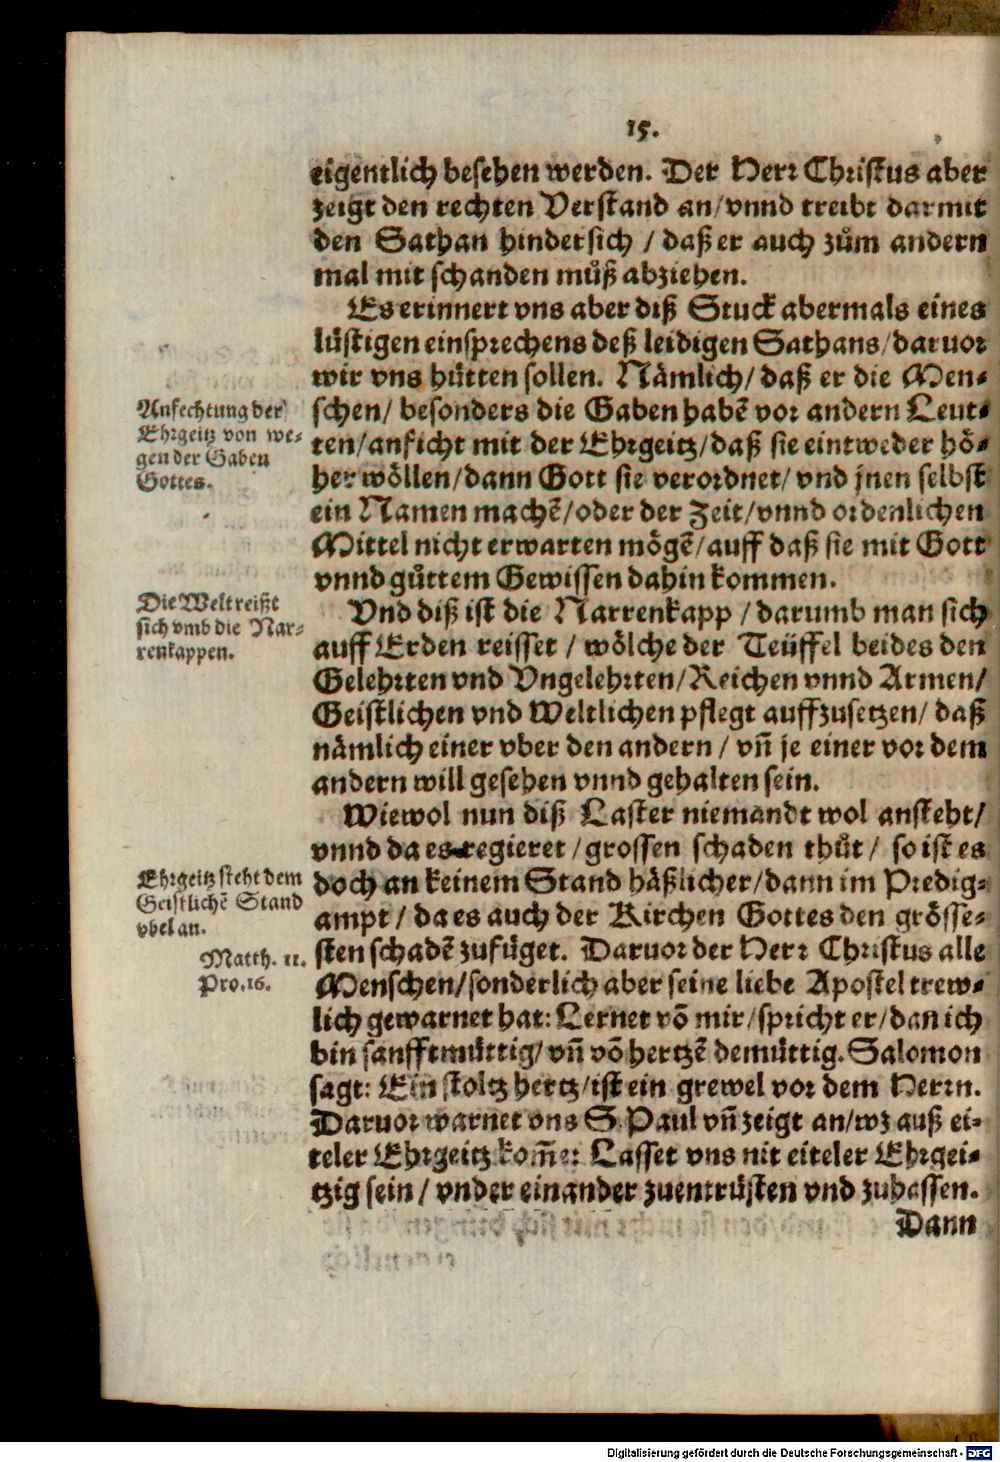 15.
eigentlich besehen werden. Der Herr Christus aber
zeigt den rechten Verstand an/vnnd treibt darmit
den Sathan hindersich / daß er auch zům andern
mal mit schanden můß abziehen.
Es erinnert vns aber diß Stuck abermals eines
lüstigen einsprechens deß leidigen Sathans/daruor
wir vns hütten sollen. Nämlich/ daß er die Men-
schen/ besonders die Gaben habẽ vor andern Leut-
ten/anficht mit der Ehrgeitz/daß sie eintweder hö-
her wöllen/dann Gott sie verordnet/ vnd jnen selbst
ein Namen machẽ/oder der Zeit/vnnd ordenlichen
Mittel nicht erwarten mögẽ/auff daß sie mit Gott
vnnd gůttem Gewissen dahin kommen.
Anfechtung der
Ehrgeitz von we-
gen der Gaben
Gottes.
Vnd diß ist die Narrenkapp / darumb man sich
auff Erden reisset / wölche der Teüffel beides den
Gelehrten vnd Vngelehrten/Reichen vnnd Armen/
Geistlichen vnd Weltlichen pflegt auffzusetzen/ daß
nämlich einer vber den andern / vñ je einer vor dem
andern will gesehen vnnd gehalten sein.
Die Welt reißt
sich vmb die Nar-
renkappen.
Wiewol nun diß Laster niemandt wol ansteht/
vnnd da es regieret / grossen schaden thůt / so ist es
doch an keinem Stand häßlicher/dann im Predig-
ampt / da es auch der Kirchen Gottes den grösse-
sten schadẽ zufüget. Daruor der Herr Christus alle
Menschen/sonderlich aber seine liebe Apostel trew-
lich gewarnet hat: Lernet võ mir/spricht er/dan ich
bin sanfftmüttig/ vñ võ hertzẽ demüttig. Salomon
sagt: Ein stoltz hertz/ist ein grewel vor dem Herrn.
Daruor warnet vns S. Paul vñ zeigt an/wz auß ei-
teler Ehrgeitz kom̃e: Lasset vns nit eiteler Ehrgei-
tzig sein / vnder einander zuentrüsten vnd zuhassen.
Ehrgeitz steht dem
Geistlichẽ Stand
vbel an.
Matth. 11.
Pro.16.
Dann
Digitalisierung gefördert durch die Deutsche Forschungsgemeinschaft - DFG